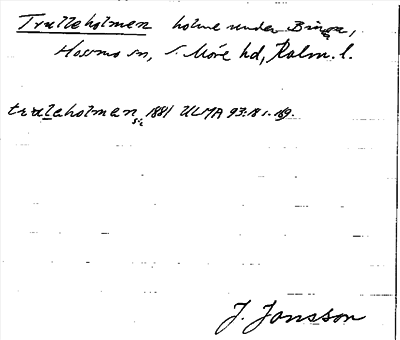 Tralleholmen holme under Binga,
Hossmo sn, S. Möre hd, Kalm. l.
tralleholmen, 1881 ULMA 93:18 s. 189.
sic
J. Jonsson